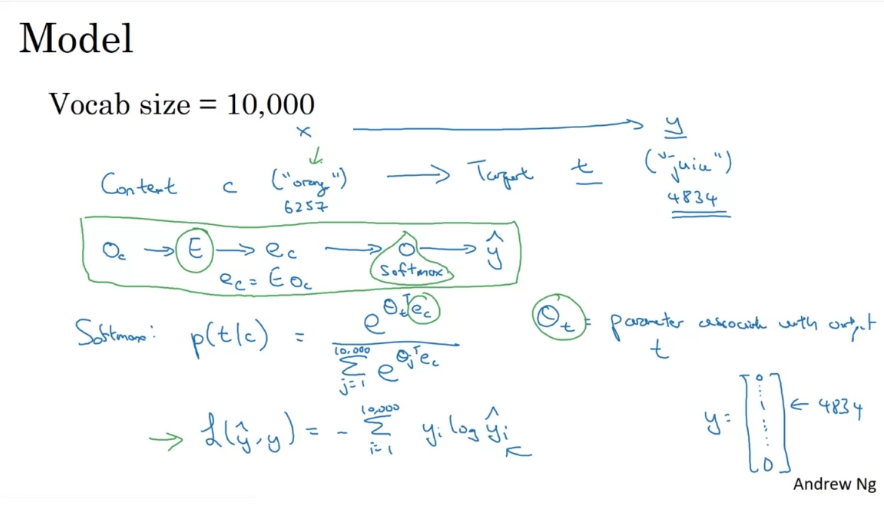 Model
Vocab size = 10,000
x → y
Content c ("orange") → Target t ("juice")
6257
4834
O_c → E → e_c → o → ŷ
softmax
e_c = E O_c
Softmax: p(t|c) = e^{θ_t^T e_c} / Σ_{j=1}^{10,000} e^{θ_j^T e_c}
θ_t = parameter associated with output t
ℒ(ŷ, y) = - Σ_{i=1}^{10,000} y_i log ŷ_i
y = [0 ⋮ 1 ⋮ 0] ← 4834
Andrew Ng